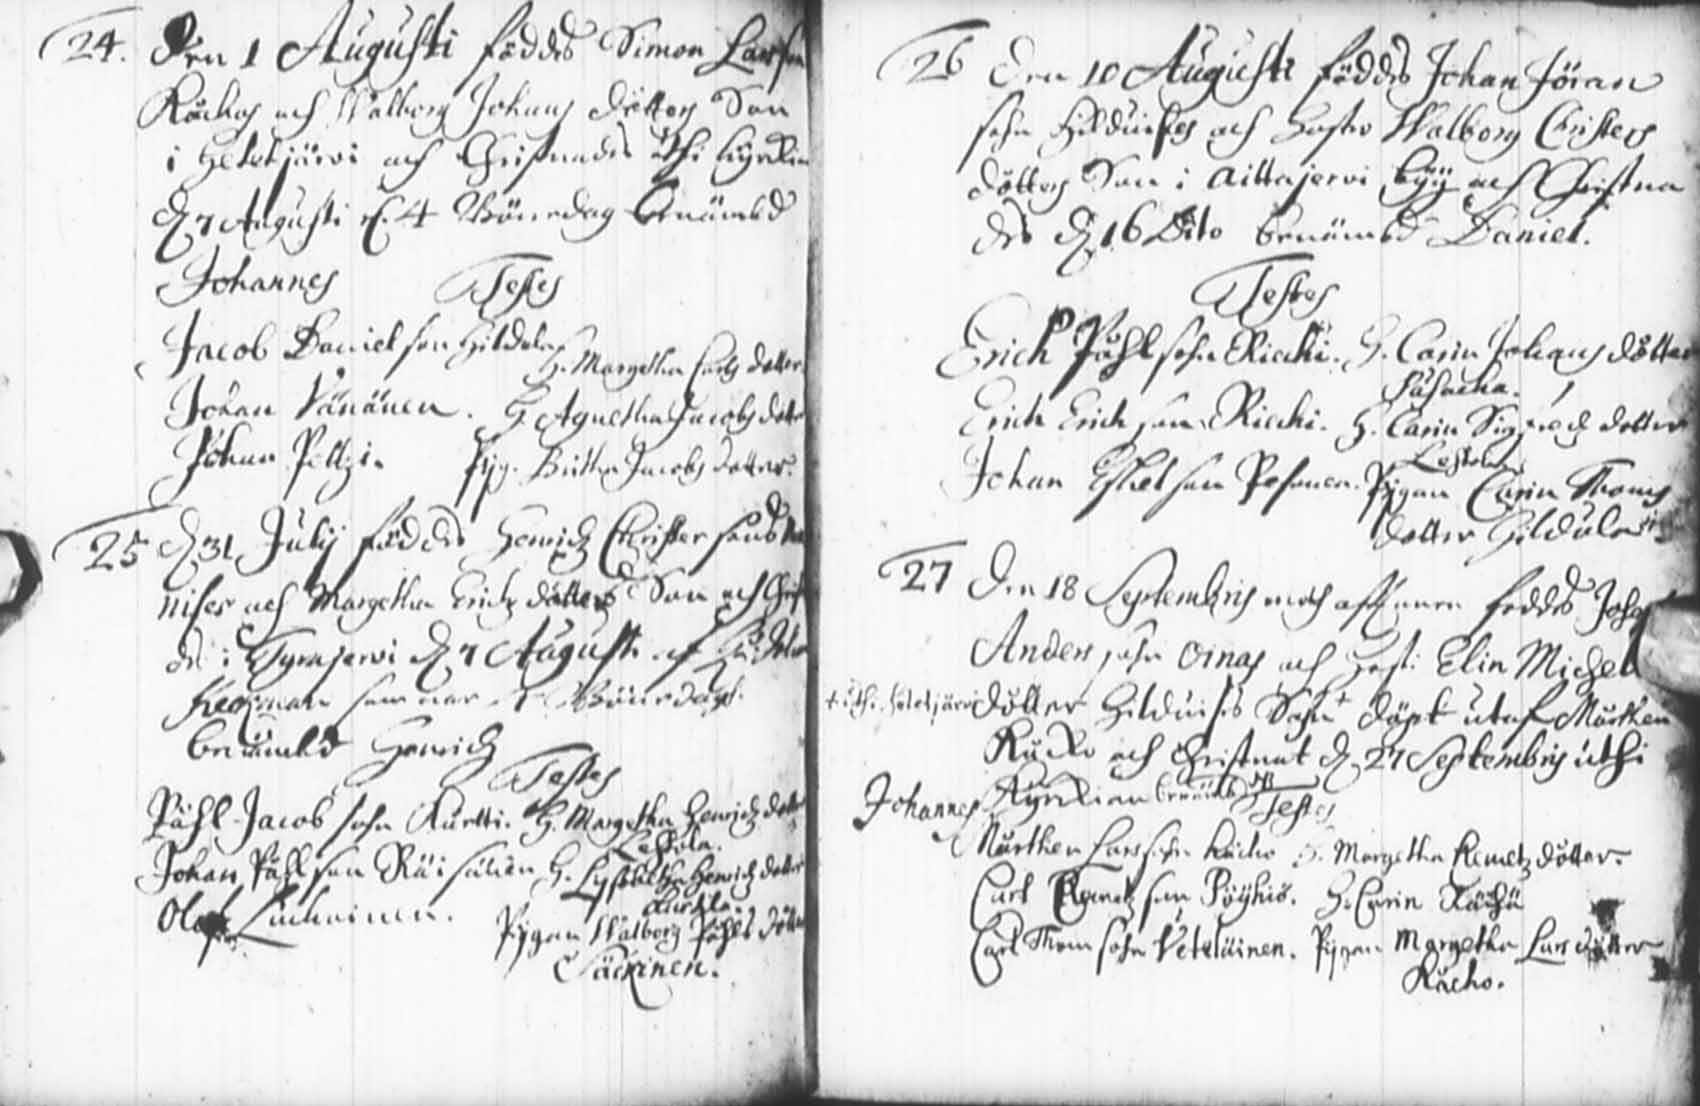 24. Den 1 Augusti föddes Simon Larsson
Kåckos och Walborg Johans dotters Son
i Hetetjärvi och Christnades uthi kyrckian
d. 7 Augusti 4 Bönedag benämbd
Johannes Testes
Jacob Daniel son Hildula H. Margetha Carls dotter
Johan Vänänen. H. Agnetha Jacobs dotter
Johan Peltzi. Pig. Britha Jacobs dotter.
25 d. 31 Julij föddes Henrich Christer sons
nises och Margetha Erichz dotters Son och Christ
des i Tyrajervi d. 7 August. af H. Johan
Heckman som war Bönedags
benämbd Henrich
Testes
Påhl Jacob sohn Kurtti. H. Margetha Henrichz dotter
Lestola.
Johan Påhl son Räisälien H. Lysbetha Henrichz dotter
Kurtila.
Olof Luckainen. Pijgan Walborg Påhls dotter
Säckinen.
26 Den 10 Augusti föddes Johan Jöran
sohn Hilduises och Hustro Walborg Christers
dotters Son i Aittajervi byy och Christna
des d. 16 Dito benämbd Daniel.
Testes
Erich Påhl sohn Riecki. H. Carin Johans dotter
Erich Erich son Riecki. H. Carin Sigfredz dotter
Lestola
Johan Eskel son Pesonen. Pijgan Carin Thoms
dotter Hildula
27 Den 18 Septembris födes Joha
Anders sohn Oinas och Hust: Elin Michel
+ uthi Hetetjärvi dotter Hilduises Sohn + döpt utaf Mårthen
Kåcko och Christnat d. 27 Septembris uthi
Kyrckian benämbd NB
Johannes Testes
Mårthen Lars sohn Kåcko H. Margetha Clemetz dotter.
Carl Clemetz son Pöyhiö. H. Carin Kåcho
Carl Thom sohn Veteläinen. Pigan Margetha Lars dotter
Kåcho.